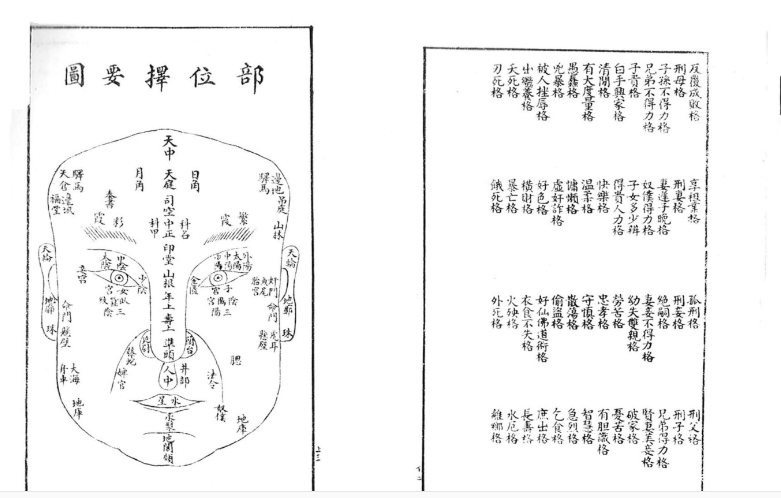 部位擇要圖
天中
天庭
司空
中正
印堂
山根
年上
壽上
準頭
人中
水星
承漿
地閣
頌
日角
月角
驛馬
邊地
吊庭
山林
驛馬
天倉
邊城
福堂
繁霞
彩霞
科名
科甲
天輪
天輪
外陽
太陽
中陽
少陽
太陰
中陰
少陰
妾宮
奸門
魚尾
命門
命門
懸壁
懸壁
虎耳
地郭
珠
珠
蘭台
井部
法令
奴僕
地庫
地庫
大海
舟車
反覆成敗格
刑母格
子孫不得力格
兄弟不得力格
子貴格
白手興家格
清閒格
有大度量格
愚蠢格
兇暴格
被人挫辱格
出繼養格
夭死格
刃死格
享祖業格
刑妻格
妻遲子晚格
奴僕得力格
子女多少辨
得貴人力格
快樂格
溫柔格
慵懶格
虛好詐格
好色格
橫財格
暴亡格
餓死格
孤刑格
刑妾格
絕嗣格
妻妾不得力格
幼失雙親格
勞苦格
忠孝格
守慎格
散蕩格
偷盜格
好仙佛道術格
衣食不失格
火殃格
外死格
刑父格
刑子格
兄弟得力格
賢妻美妾格
破家格
憂苦格
有膽識格
智慧格
急烈格
乞食格
庶出格
長壽格
水厄格
離鄉格